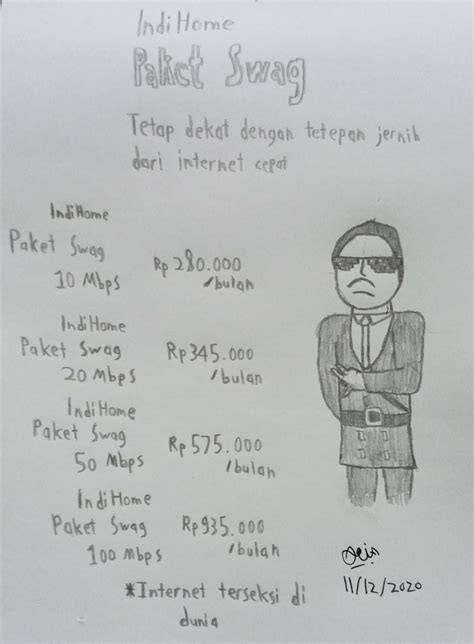 IndiHome
Paket Swag
Tetap dekat dengan tetepan jernih
dari internet cepat
IndiHome
Paket Swag
10 Mbps
Rp 280.000
/bulan
IndiHome
Paket Swag
20 Mbps
Rp 345.000
/bulan
IndiHome
Paket Swag
50 Mbps
Rp 575.000
/bulan
IndiHome
Paket Swag
100 Mbps
Rp 935.000
/bulan
*Internet terseksi di
dunia
11/12/2020